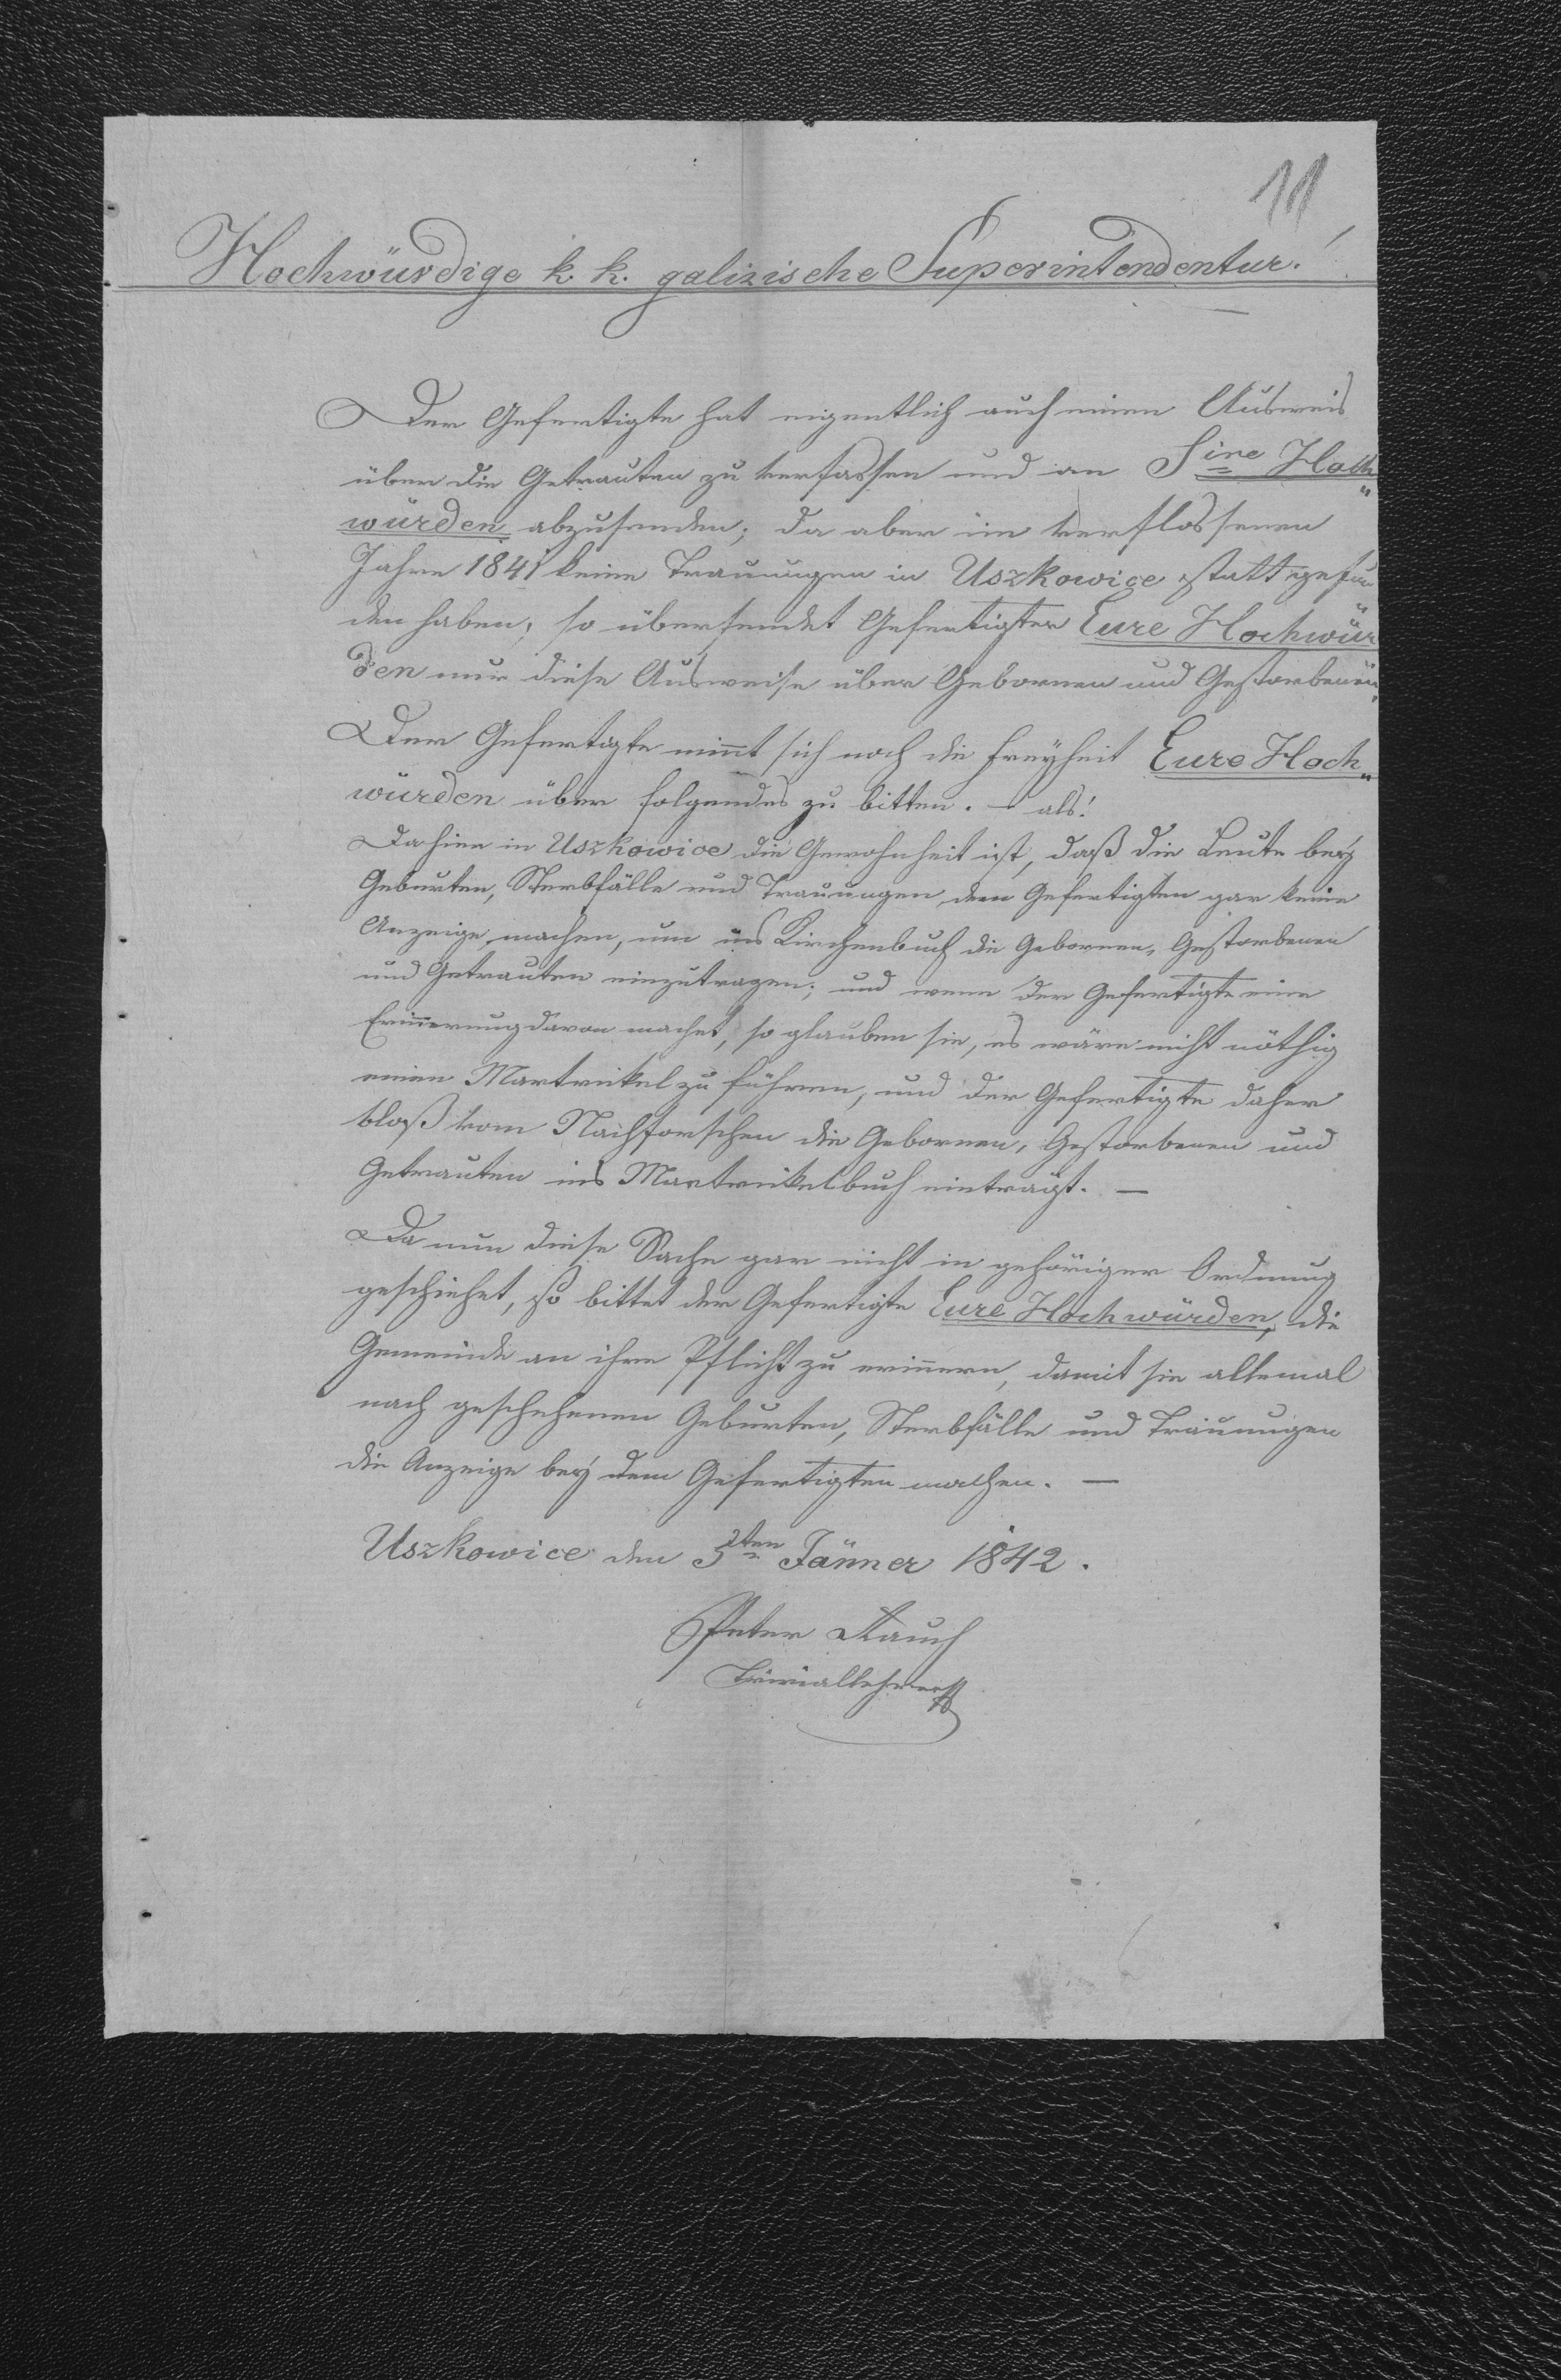 11
Hochwürdige k. k. galizische Superintendentur!
Der Gefertigte hat eigentlich auch einen Ausweis
über die Getrauten zu verfassen und an Sine Hoch„
würden abzusenden; da aber im verflossenen
Jahre 1841 keine Trauungen in Uszkowice statt gefun
den haben, so übersendet Gefertigter Eure Hochwür„
den nur diese Ausweise über Gebornen und Gestorbenen.
Der Gefertigte nimt sich noch die Freyheit Eure Hoch„
würden über folgendes zu bitten. – als!
Da hier in Uszkowice die Gewohnheit ist, daß die Leute bey
Geburten, Sterbfälle und Trauungen, dem Gefertigten gar keine
Anzeige machen, um ins Kirchenbuch die Gebornen, Gestorbenen
und Getrauten einzutragen; und wenn der Gefertigte eine
Erinnerung davon machet, so glauben sie, es wäre nicht nöthig
einen Martrikel zu führen, und der Gefertigte daher
bloß vom Nachforschen die Gebornen, Gestorbenen und
Getrauten ins Martrikelbuch einträgt. —
Da nun diese Sache gar nicht in gehöriger Ordnung
geschiehet, so bittet der Gefertigte Eure Hochwürden, die
Gemeinde an ihre Pflicht zu erinnern, damit sie allemal
nach geschehenen Geburten, Sterbfälle und Trauungen
die Anzeige bey dem Gefertigten machen. —
Uszkowice den 3ten Jänner 1842.
Peter Rauch
Triviallehrer